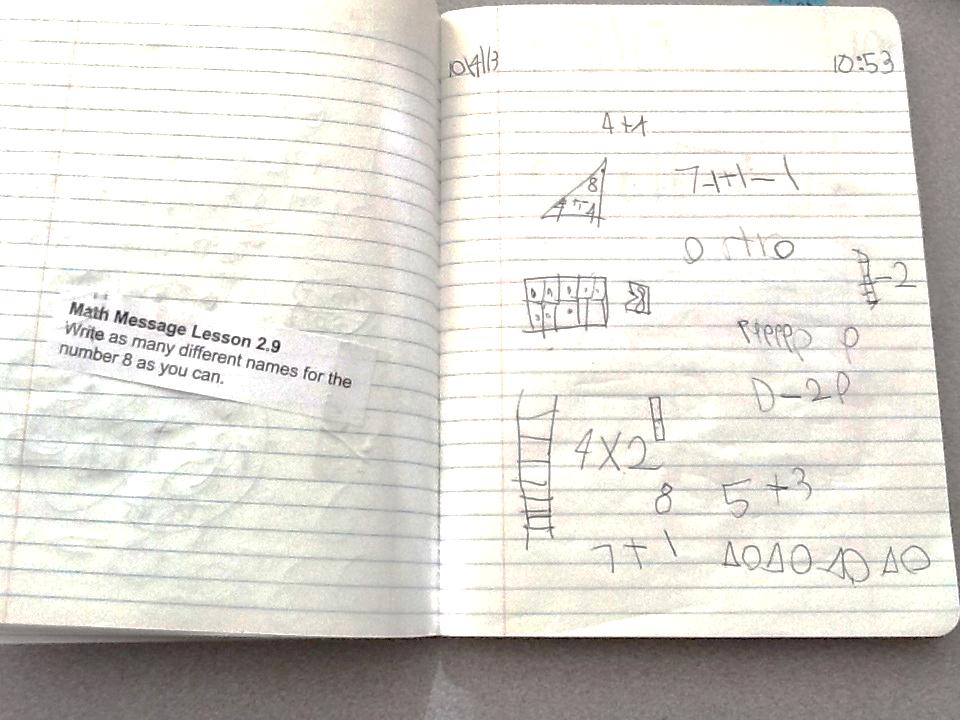 Math Message Lesson 2.9
Write as many different names for the
number 8 as you can.
10/4/13
10:53
4+4
8
4+4
7-1+1-1
-2
D-2P
4X2
8
5+3
7+1